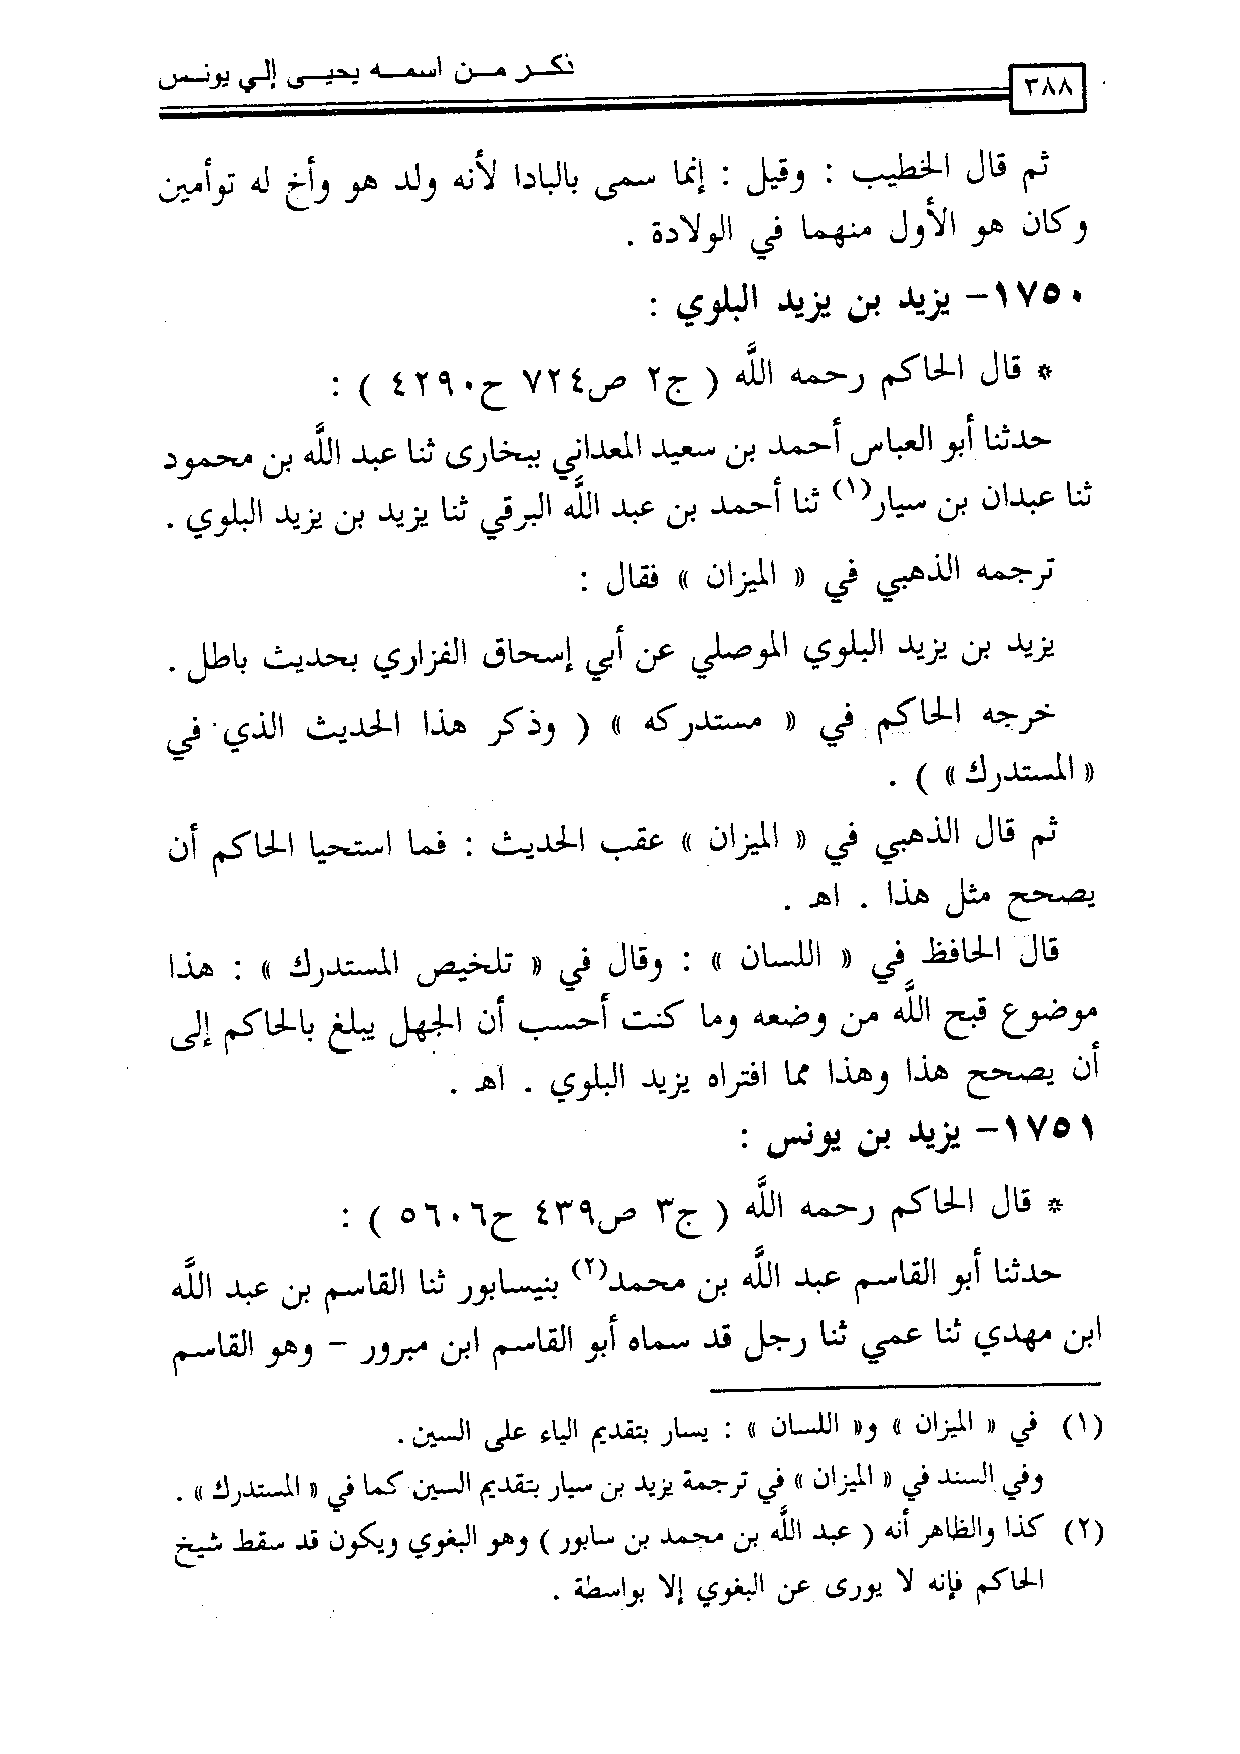 ذكر من اسمه يحيى إلي يونس
٣٨٨
ثم قال الخطيب : وقيل : إنما سمى بالبادا لأنه ولد هو وأخ له توأمين
وكان هو الأول منهما في الولادة .
١٧٥٠- يزيد بن يزيد البلوي :
* قال الحاكم رحمه الله ( ج٢ ص٧٢٤ ح٤٢٩٠ ) :
حدثنا أبو العباس أحمد بن سعيد المعداني ببخارى ثنا عبد الله بن محمود
ثنا عبدان بن سيار(١) ثنا أحمد بن عبد الله البرقي ثنا يزيد بن يزيد البلوي .
ترجمه الذهبي في « الميزان » فقال :
يزيد بن يزيد البلوي الموصلي عن أبي إسحاق الفزاري بحديث باطل .
خرجه الحاكم في « مستدركه » ( وذكر هذا الحديث الذي في
« المستدرك » ) .
ثم قال الذهبي في « الميزان » عقب الحديث : فما استحيا الحاكم أن
يصحح مثل هذا . اهـ .
قال الحافظ في « اللسان » : وقال في « تلخيص المستدرك » : هذا
موضوع قبح الله من وضعه وما كنت أحسب أن الجهل يبلغ بالحاكم إلى
أن يصحح هذا وهذا مما افتراه يزيد البلوي . اهـ .
١٧٥١- يزيد بن يونس :
* قال الحاكم رحمه الله ( ج٣ ص٤٣٩ ح٥٦٠٦ ) :
حدثنا أبو القاسم عبد الله بن محمد(٢) بنيسابور ثنا القاسم بن عبد الله
ابن مهدي ثنا عمي ثنا رجل قد سماه أبو القاسم ابن مبرور - وهو القاسم
(١) في « الميزان » و« اللسان » : يسار بتقديم الياء على السين .
وفي السند في « الميزان » في ترجمة يزيد بن سيار بتقديم السين كما في « المستدرك » .
(٢) كذا والظاهر أنه ( عبد الله بن محمد بن سابور ) وهو البغوي ويكون قد سقط شيخ
الحاكم فإنه لا يورى عن البغوي إلا بواسطة .